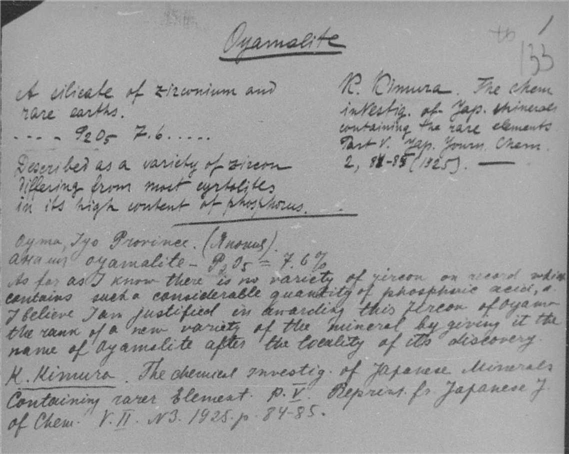 1
133
Oyamalite
A silicate of zirconium and
rare earths.
.... P2O5 7.6.....
Described as a variety of zircon
differing from most cyrtolites
in its high content of phosphorus.
K. Kimura. The chem
investig. of Jap. minerals
containing the rare elements
Part V. Jap. Journ. Chem.
2, 81-85 (1925). —
Oyma, Iyo Province.
oyamalite - P2O5 = 7.6%
As far as I know there is no variety of zircon on record which
contains such a considerable quantity of phosphoric acid,
I believe I am justified in awarding this zircon of Oyama
the rank of a new variety of the mineral by giving it the
name of Oyamalite after the locality of its discovery.
K. Kimura. The chemical investig. of Japanese Minerals
Containing rarer Element. p. V. Reprint. fr Japanese J.
of Chem. V. II. N3. 1925. p. 84-85.